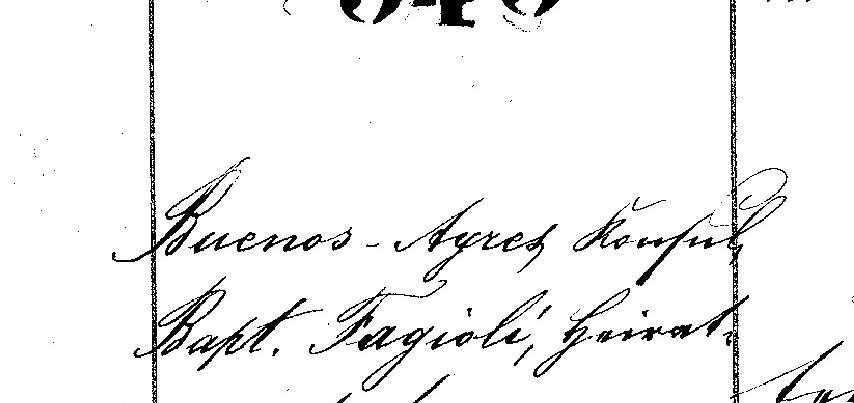 Buenos-Ayres Konsul,
Bapt. Fagioli, Heirat.